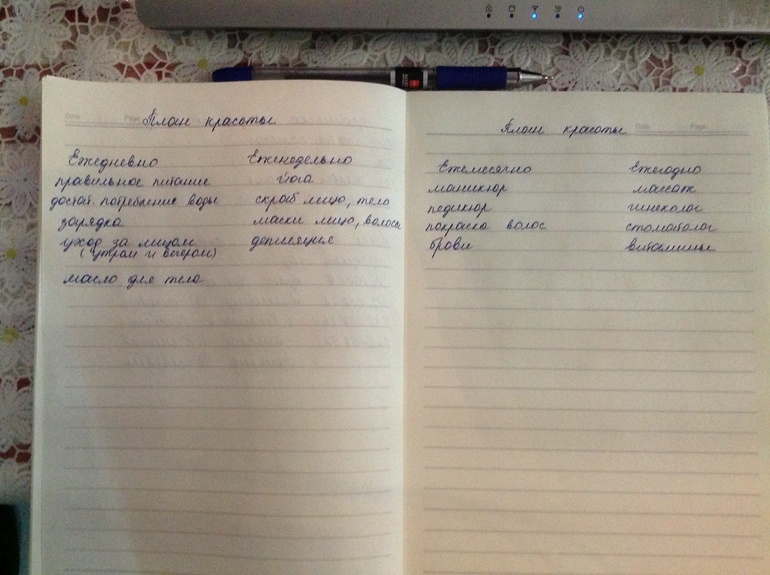 План красоты
Ежедневно
правильное питание
достат. потребление воды
зарядка
уход за лицом
(утром и вечером)
масло для тела
Еженедельно
йога
скраб лицо, тело
маски лицо, волосы
депиляция
План красоты
Ежемесячно
маникюр
педикюр
покраска волос
брови
Ежегодно
массаж
гинеколог
стоматолог
витамины